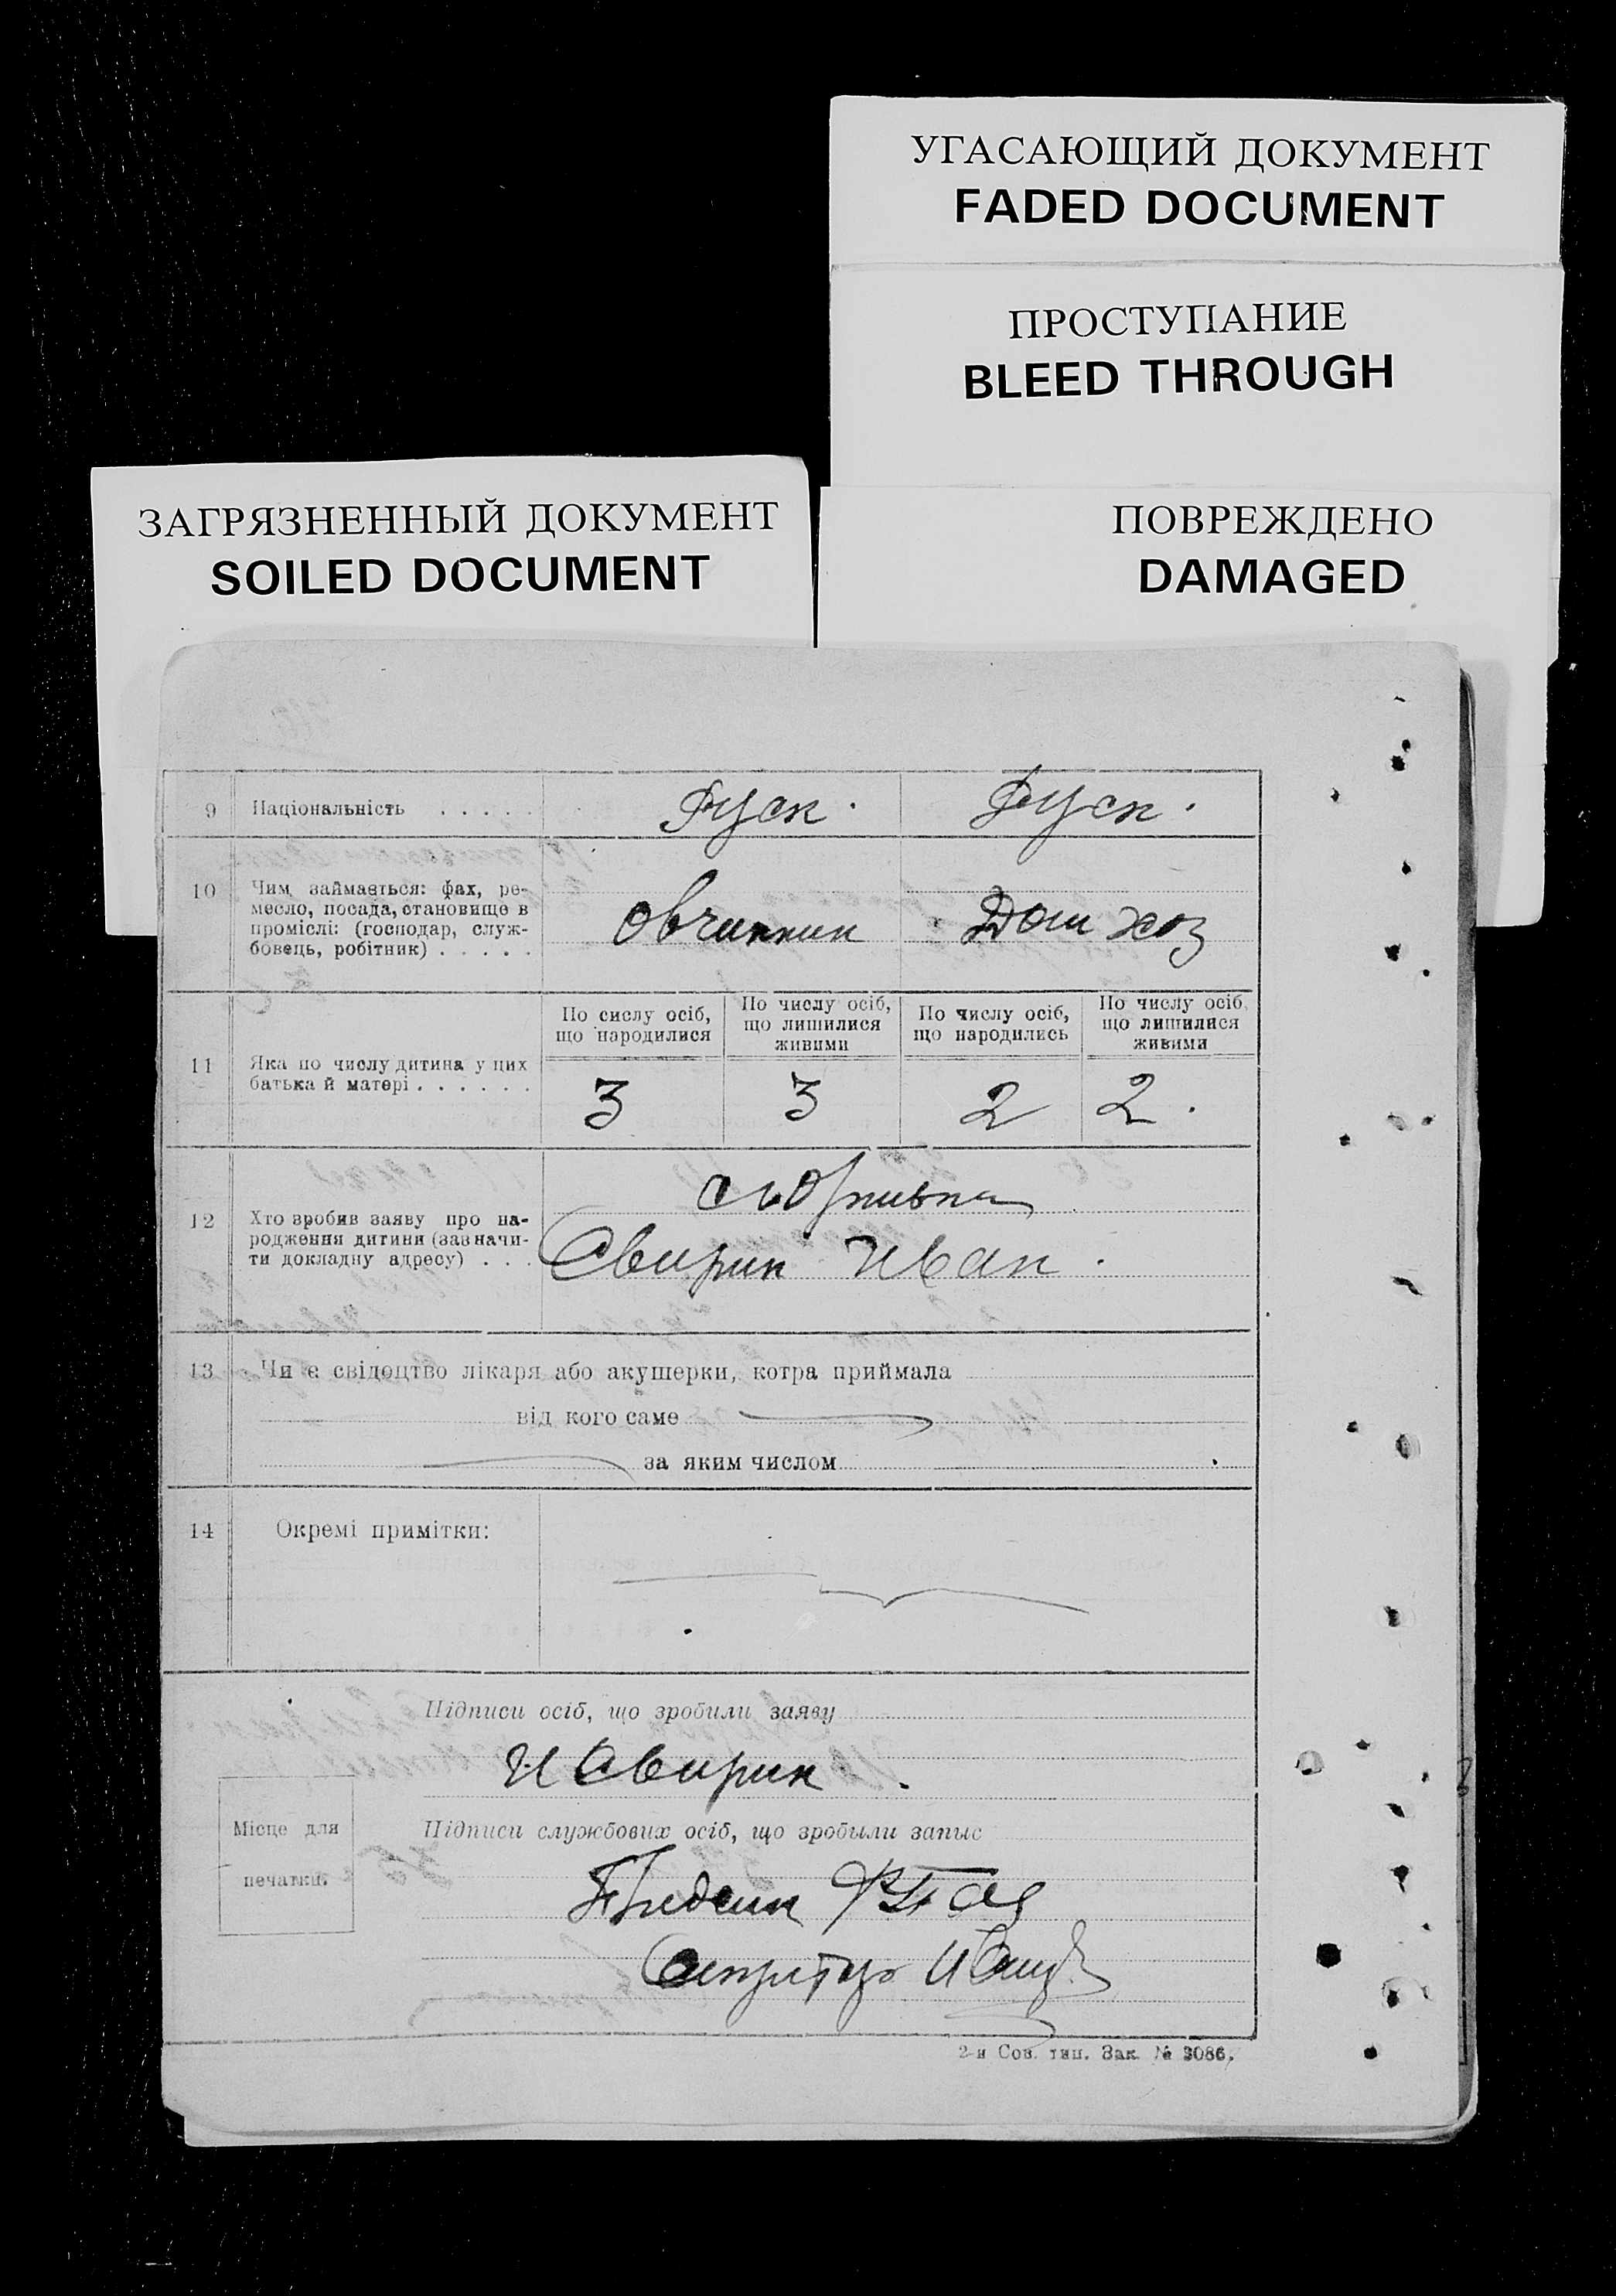 УГАСАЮЩИЙ ДОКУМЕНТ
FADED DOCUMENT
ПРОСТУПАНИЕ
BLEED THROUGH
ЗАГРЯЗНЕННЫЙ ДОКУМЕНТ
SOILED DOCUMENT
ПОВРЕЖДЕНО
DAMAGED
9 Національність . . . . . Руск. Руск.
10 Чим займається: фах, ре-
месло, посада, становище в
проміслі: (господар, служ-
бовець, робітник) . . . . .
Овчинник Дом хоз
11 Яка по числу дитина у цих
батька й матері . . . . . .
По сислу осіб,
що народилися
По числу осіб,
що лишилися
живими
По числу осіб,
що народились
По числу осіб,
що лишилися
живими
3 3 2 2.
12 Хто зробив заяву про на-
родження дитини (зазначи-
ти докладну адресу) . . .
Свирин Иван.
13 Чи є свідоцтво лікаря або акушерки, котра приймала
від кого саме
за яким числом
14 Окремі примітки:
Підписи осіб, що зробили заяву
И Свирин
Місце для
печатки.
Підписи службових осіб, що зробыли запыс
2-я Сов. тип. Зак. № 3086.